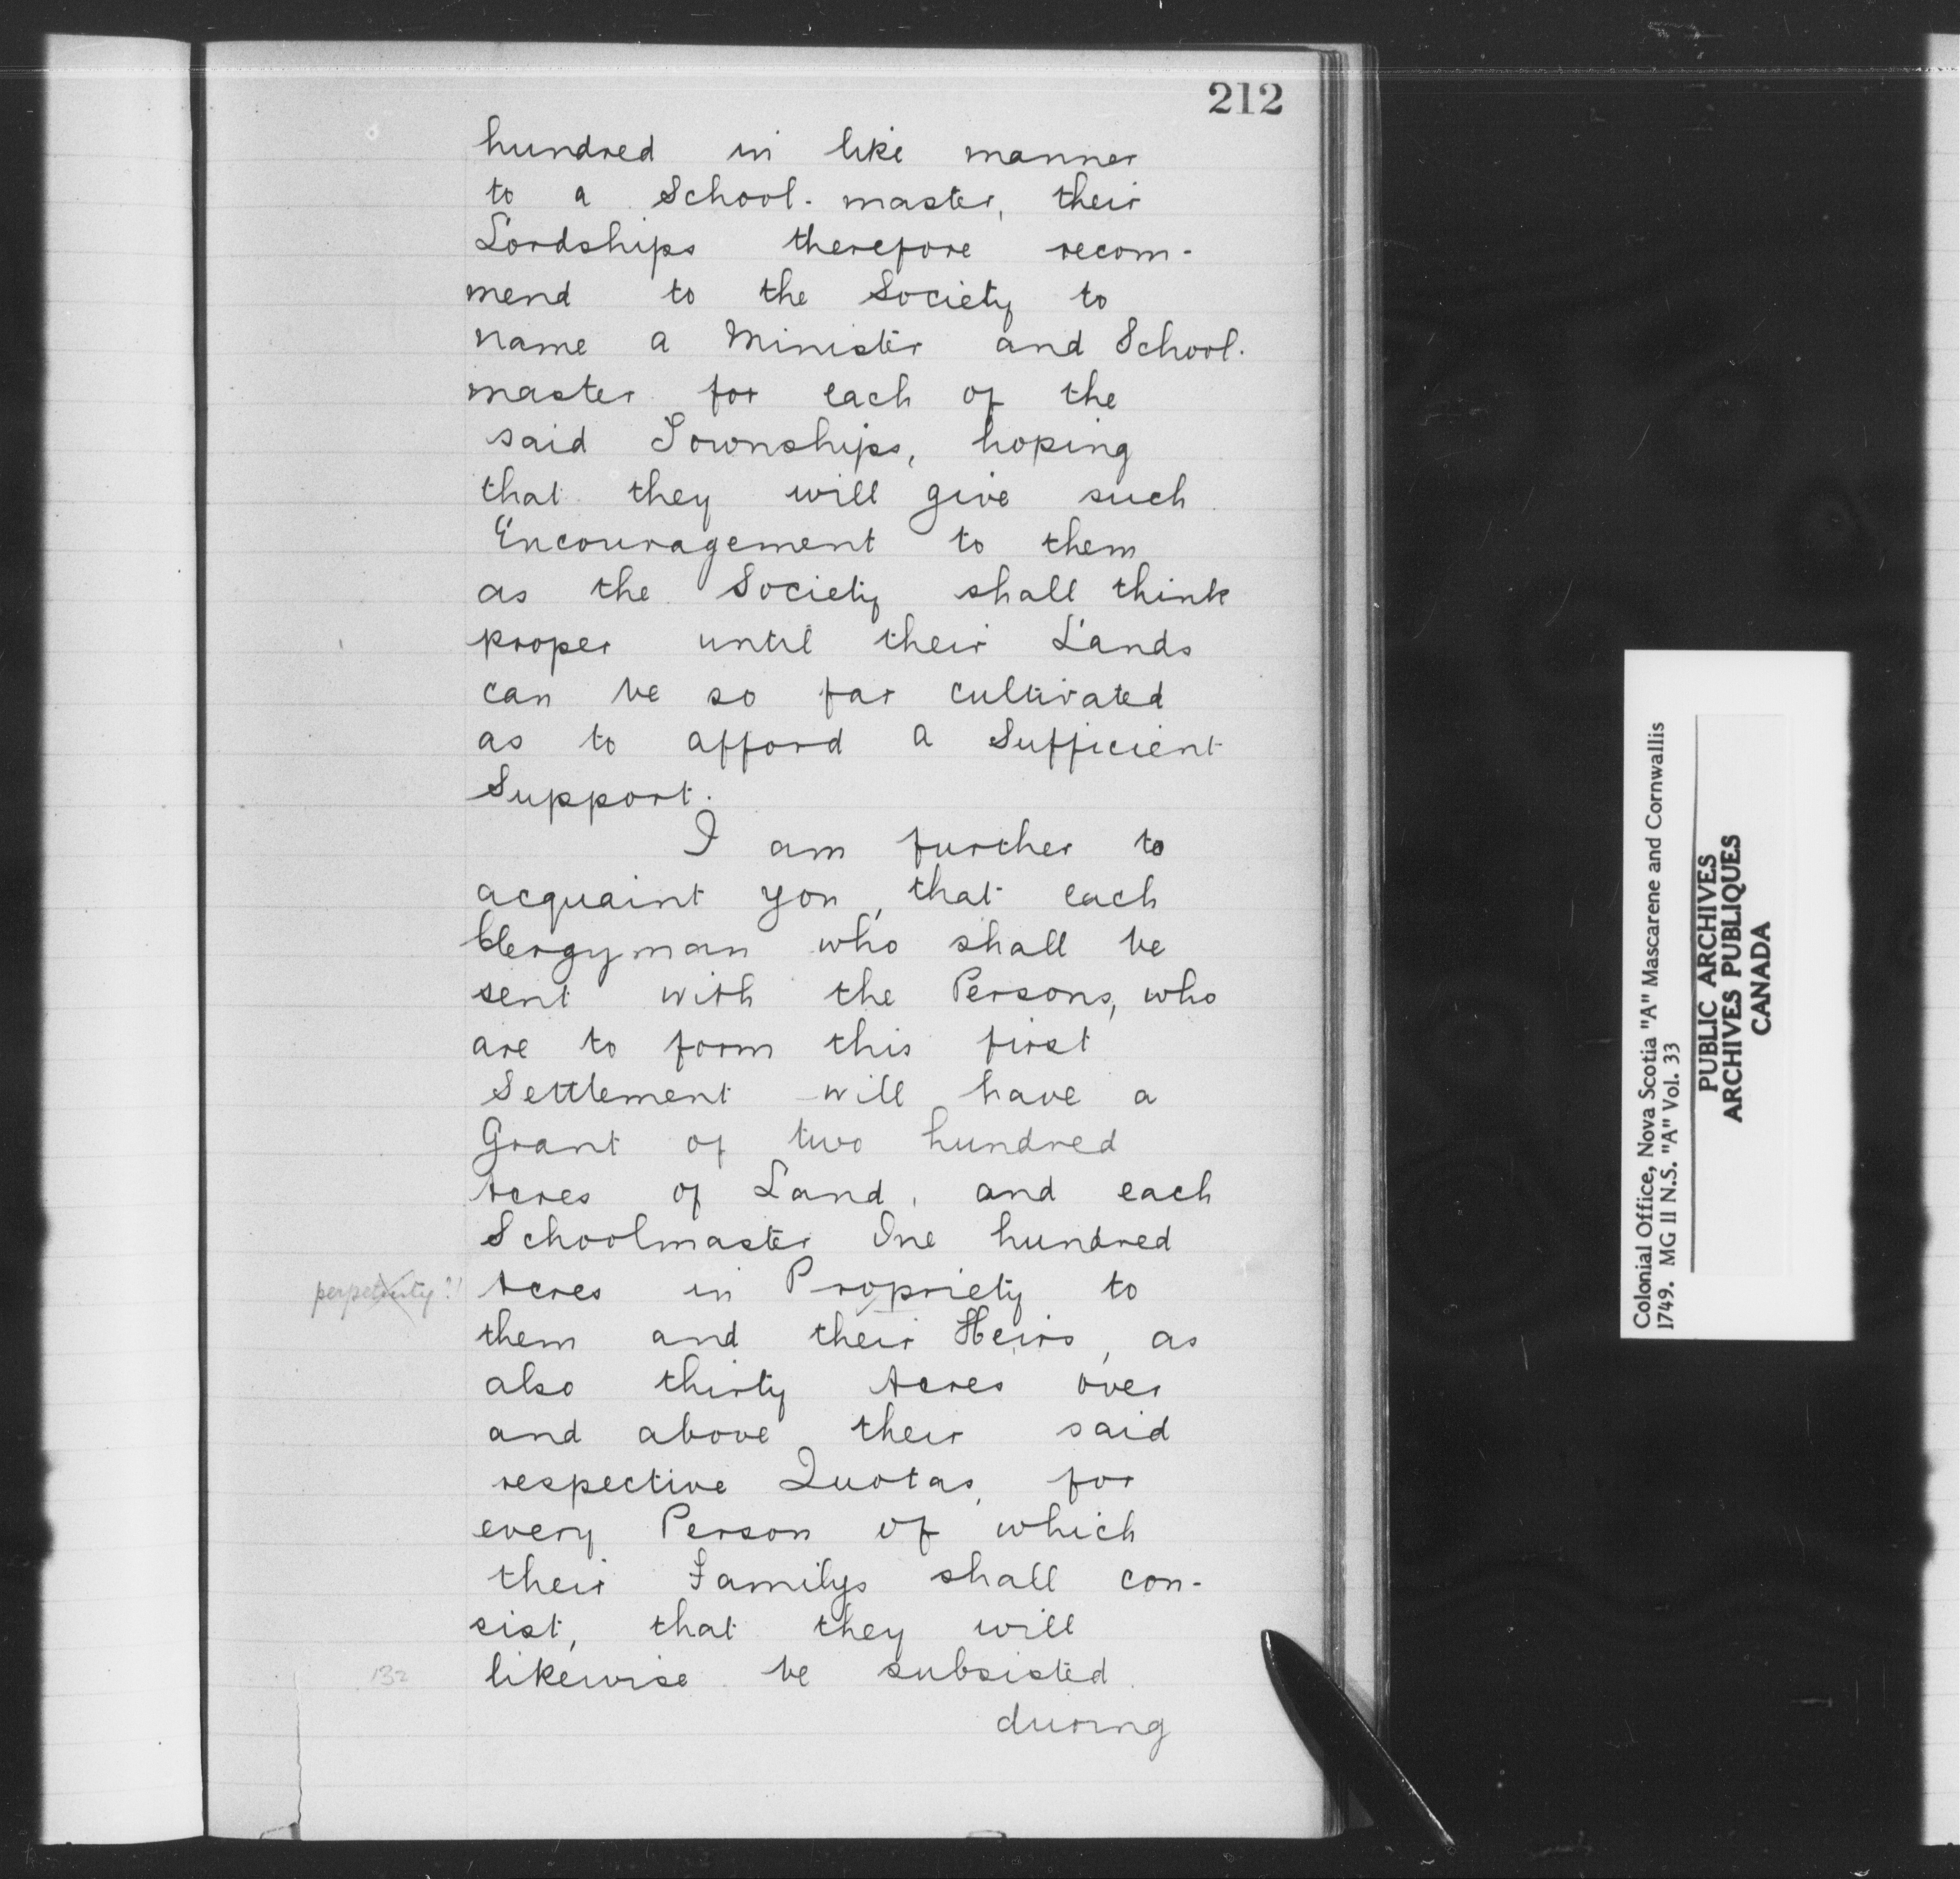 212
hundred in like manner
to a School-master, their
Lordships therefore recom-
mend to the Society to
name a Minister and School-
master for each of the
said Townships, hoping
that they will give such
Encouragement to them
as the Society shall think
proper until their Lands
can be so far cultivated
as to afford a Sufficient
Support.
I am further to
acquaint you, that each
Clergyman who shall be
sent with the Persons, who
are to form this first
Settlement will have a
Grant of two hundred
Acres of Land, and each
Schoolmaster One hundred
perpetuity?!
Acres in Propriety to
them and their Heirs, as
also thirty Acres over
and above their said
respective Quotas, for
every Person of which
their Familys shall con-
sist, that they will
132
likewise be subsisted
during
Colonial Office, Nova Scotia "A" Mascarene and Cornwallis
1749. MG 11 N.S. "A" Vol. 33
PUBLIC ARCHIVES
ARCHIVES PUBLIQUES
CANADA